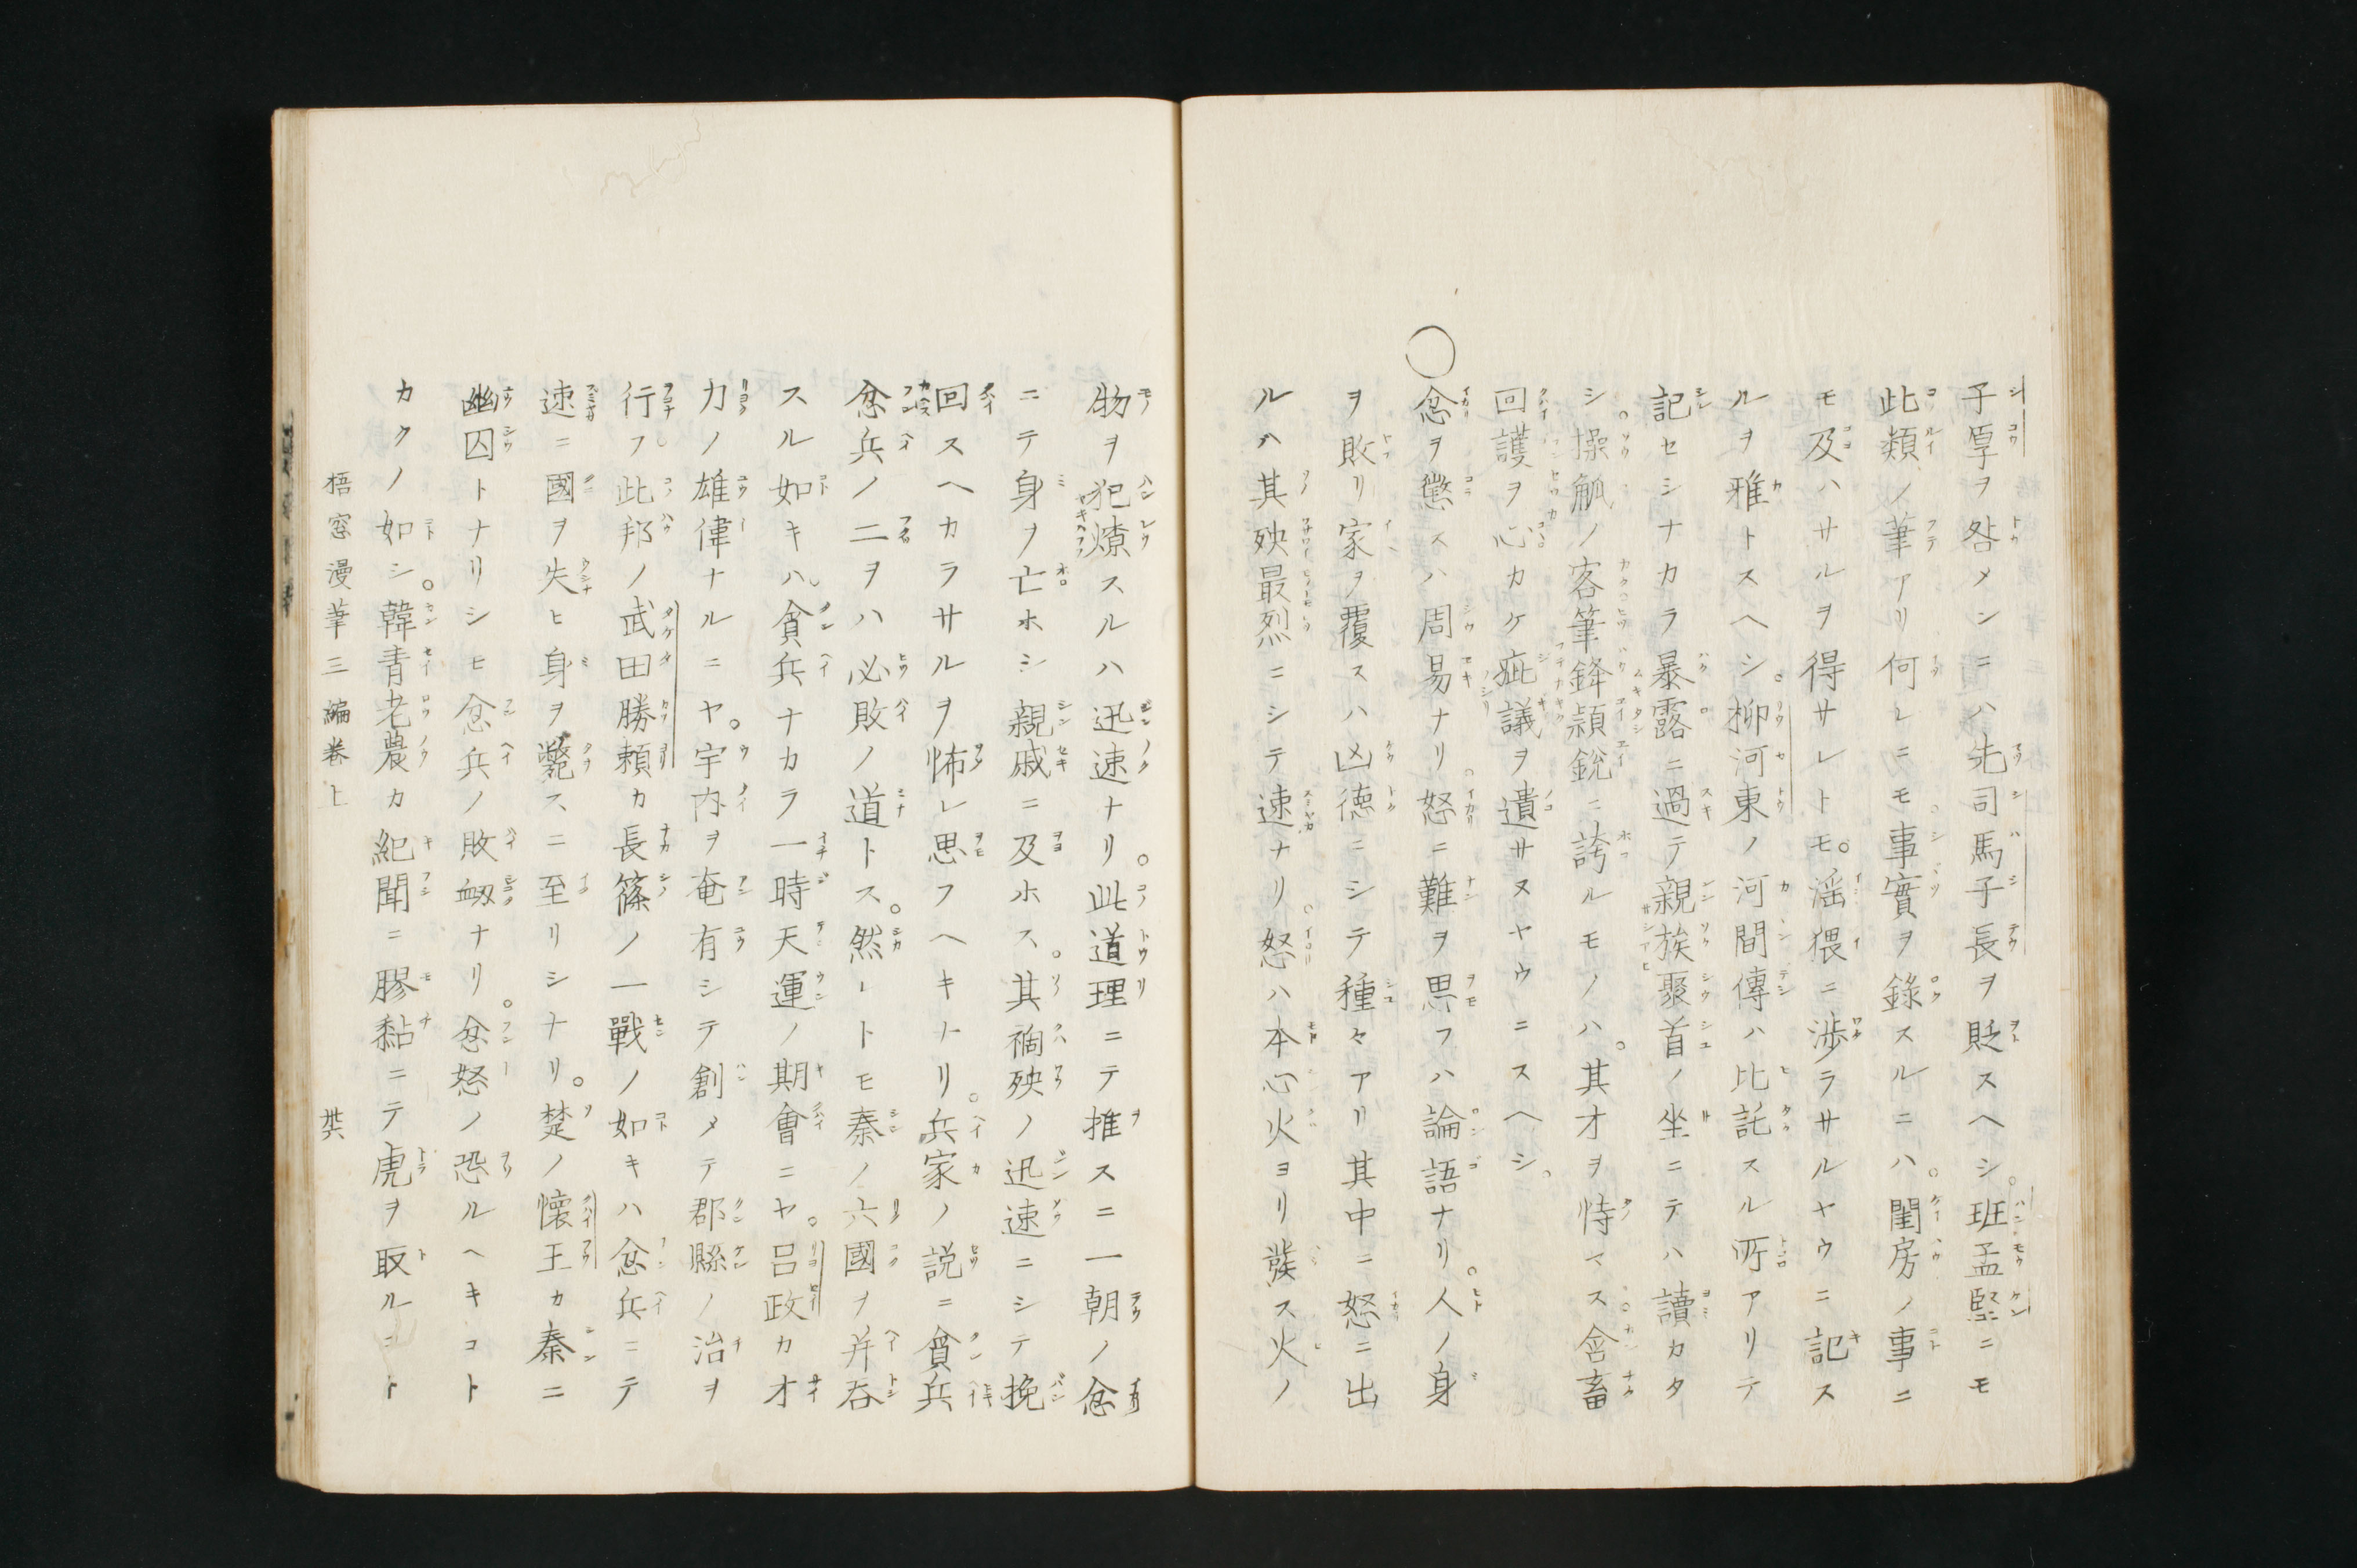 子厚ヲ咎メンニハ先司馬子長ヲ貶スヘシ。班孟堅ニモ
此類ノ筆アリ何レニモ事實ヲ錄スルニハ。閨房ノ事ニ
モ及ハサルヲ得サレトモ。淫猥ニ渉ラサルヤウニ記ス
ルヲ雅トスヘシ。柳河東ノ河間傳ハ比託スル所アリテ
記セシナカラ暴露ニ過テ親族聚首ノ坐ニテハ讀カタ
シ。操觚ノ客筆鋒穎銳ニ誇ルモノハ。其才ヲ恃マス含畜
回護ヲ心カケ疵議ヲ遺サヌヤウニスヘシ。
○忿ヲ懲スハ周易ナリ。怒ニ難ヲ思フハ論語ナリ。人ノ身
ヲ敗リ家ヲ覆スハ凶德ニシテ種々アリ其中ニ怒ニ出
ルハ其殃最烈ニシテ速ナリ。怒ハ本心火ヨリ發ス火ノ
物ヲ犯燎スルハ迅速ナリ。此道理ニテ推スニ一朝ノ忿
ニテ身ヲ亡ホシ親戚ニ及ホス。其禍殃ノ迅速ニシテ挽
回スヘカラサルヲ怖レ思フヘキナリ。兵家ノ説ニ貪兵
忿兵ノ二ヲハ必敗ノ道トス。然レトモ秦ノ六國ヲ并吞
スル如キハ貪兵ナカラ一時天運ノ期會ニヤ。呂政カ才
力ノ雄偉ナルニヤ。宇内ヲ奄有シテ創メテ郡縣ノ治ヲ
行フ此邦ノ武田勝頼カ長篠ノ一戰ノ如キハ忿兵ニテ
速ニ國ヲ失ヒ身ヲ斃スニ至リシナリ。楚ノ懐王カ秦ニ
幽囚トナリシモ忿兵ノ敗衂ナリ。忿怒ノ恐ルヘキコト
カクノ如シ。韓青老農カ紀聞ニ膠黏ニテ虎ヲ取ルコト
梧窓漫筆三編卷上